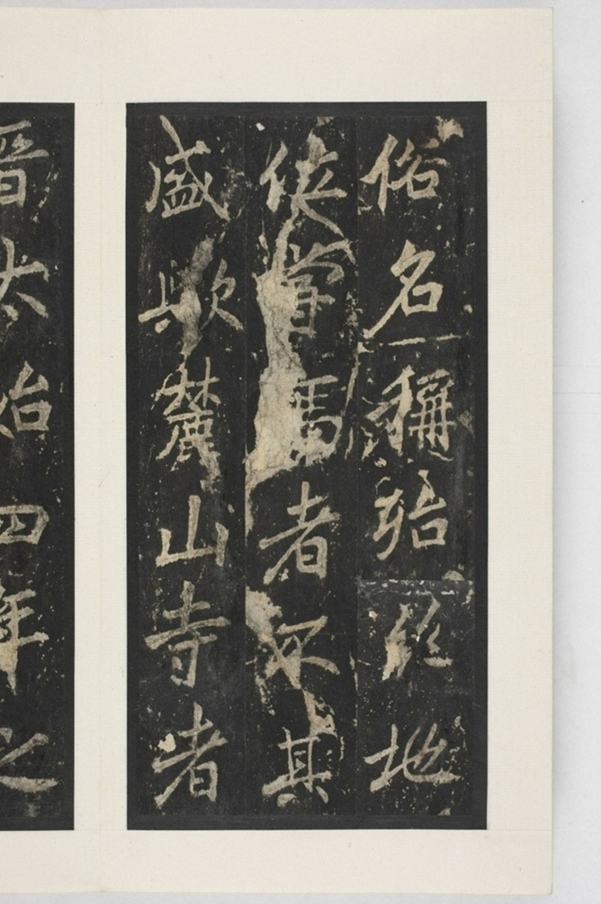 俗名稱殆絕地
位嘗者不其
盛歟麓山寺者
晉太始四年之